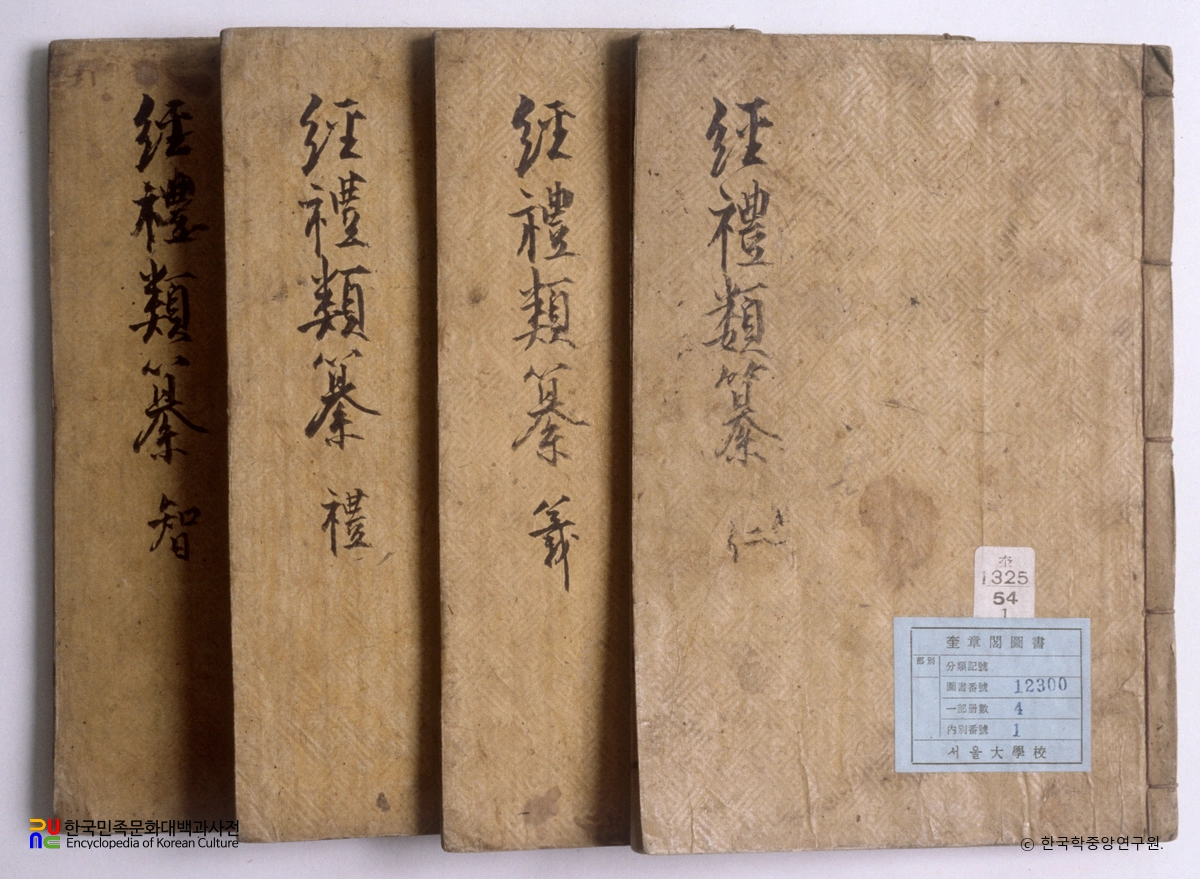 經禮類纂 仁
經禮類纂 義
經禮類纂 禮
經禮類纂 智
奎
1325
54
1
奎章閣圖書
部別
分類記號
圖書番號 12300
一部冊數 4
內別番號 1
서울大學校
한국민족문화대백과사전
Encyclopedia of Korean Culture
© 한국학중앙연구원.